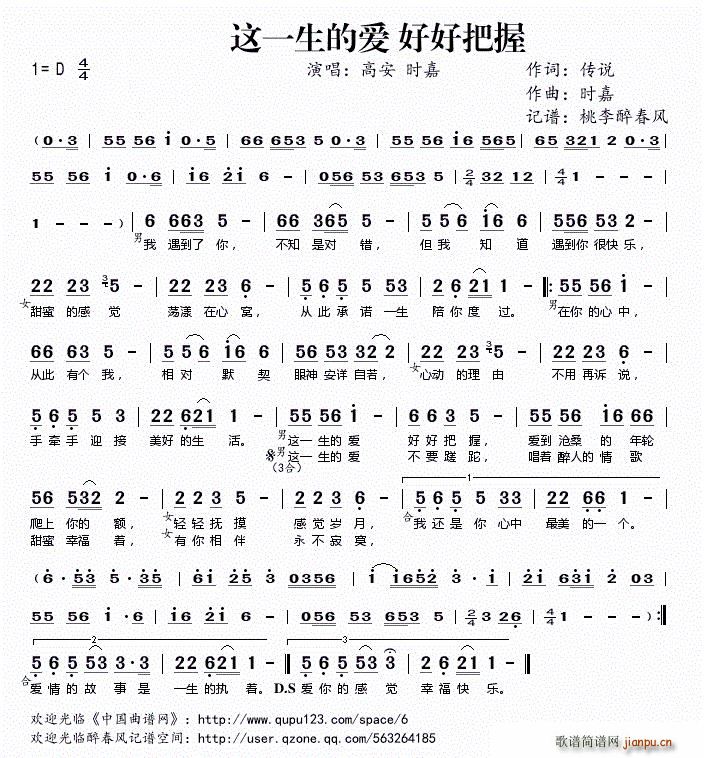 这一生的爱 好好把握
1=D 4/4 演唱：高安 时嘉 作词：传说
作曲：时嘉
记谱：桃李醉春风
(0·3 | 55 56 i 0·5 | 66 653 5 0·3 | 55 56 i6 565 | 65 321 2 0·3 |
55 56 i 0·6 | i6 2i 6 - | 056 53 653 5 | 2/4 32 12 | 4/4 1 - - - |
1 - - -) | 6 663 5 - | 66 365 5 - | 55 6 i6 6 | 556 53 2 - |
男我 遇到了 你， 不知 是对 错， 但我 知 道 遇到你 很快乐，
22 23 5 - | 22 23 6 - | 5 6 5 5 53 | 2 6 21 1 - ‖: 55 55 6 i - |
女甜蜜 的感 觉 荡漾 在心 窝， 从此 承诺 一生 陪你 度 过。 男在你 的心 中，
66 63 5 - | 55 6 i6 6 | 56 53 32 2 | 22 23 5 - | 22 23 6 - |
从此 有个 我， 相对 默 契 眼神 安详 自若， 女心动 的理 由 不用 再诉 说，
5 6 5 5 3 | 22 6 21 1 - | 55 55 6 i - | 66 63 5 - | 55 56 i6 66 |
手牵手 迎 接 美好 的生 活。 男这一 生的 爱 好好 把握， 爱到 沧桑 的 年轮
男这一 生的 爱 不要 蹉跎， 唱着 醉人 的 情歌
(3合)
56 532 2 - | 2 2 3 5 - | 22 23 6 - | 5 6 5 5 33 | 22 66 1 - |
爬上 你的 额， 女轻轻 抚 摸 感觉 岁 月， 合我 还是 你 心中 最美 的一 个。
甜蜜 幸福 着， 女有你 相伴 永不 寂寞，
(6· 53 3·535 | 6i 2i25 3 0356 | i i652 3 - | 2i 2 63i 2 0i |
55 56 i ·6 | i6 2i 6 - | 056 53 653 5 | 2/4 3 26 | 4/4 1 - - -) :‖
5 6 5 53 3·3 | 22 621 1 - ‖ 5 6 5 53 3 | 2 6 21 1 - ‖
合爱情 的 故 事 是 一生 的执 着。D.S 爱你 的 感 觉 幸福 快 乐。
欢迎光临《中国曲谱网》：http://www.qupu123.com/space/6
欢迎光临醉春风记谱空间：http://user.qzone.qq.com/563264185
歌谱简谱网 jianpu.cn